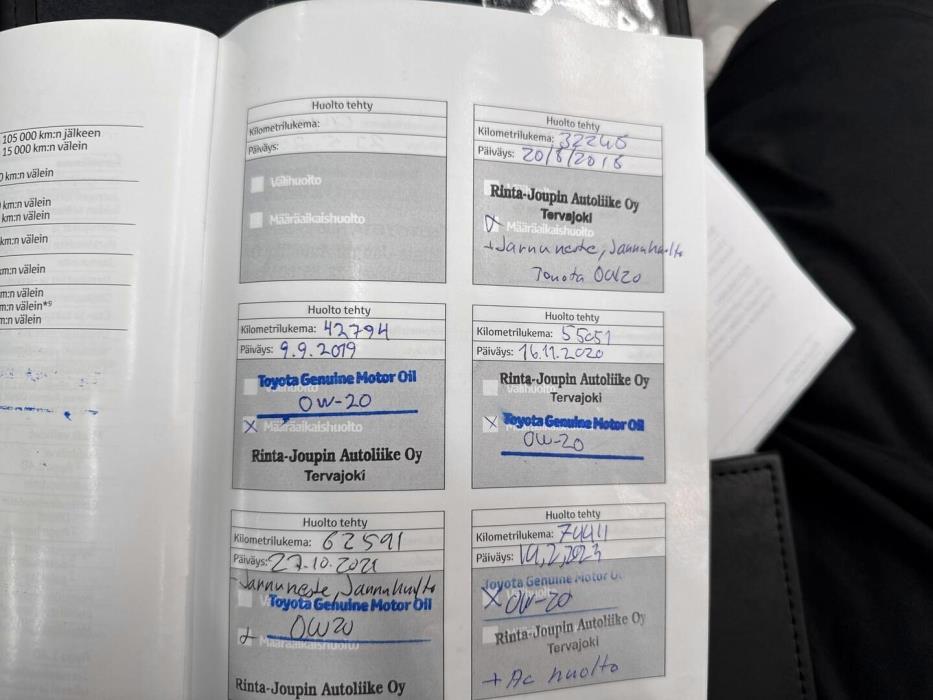 105 000 km:n jälkeen
15 000 km:n välein
km:n välein
km:n välein
km:n välein
km:n välein
km:n välein
m:n välein
m:n välein*9
m:n välein
Huolto tehty
Kilometrilukema:
Päiväys:
Välihuolto
Määräaikaishuolto
Huolto tehty
Kilometrilukema: 32245
Päiväys: 20/8/2018
Rinta-Joupin Autoliike Oy
Tervajoki
Määräaikaishuolto
+Jarruneste, Jarruhuolto
Toyota 0W20
Huolto tehty
Kilometrilukema: 42794
Päiväys: 9.9.2019
Toyota Genuine Motor Oil
0W-20
Määräaikaishuolto
Rinta-Joupin Autoliike Oy
Tervajoki
Huolto tehty
Kilometrilukema: 55051
Päiväys: 16.11.2020
Rinta-Joupin Autoliike Oy
Välihuolto
Tervajoki
Toyota Genuine Motor Oil
0W-20
Huolto tehty
Kilometrilukema: 62591
Päiväys: 27.10.2021
-Jarruneste, Jarruhuolto
Toyota Genuine Motor Oil
0W20
Määräaikaishuolto
Rinta-Joupin Autoliike Oy
Huolto tehty
Kilometrilukema: 74411
Päiväys: 14,2,2023
Toyota Genuine Motor O
0W-20
Rinta-Joupin Autoliike Oy
Tervajoki
+ Ac huolto